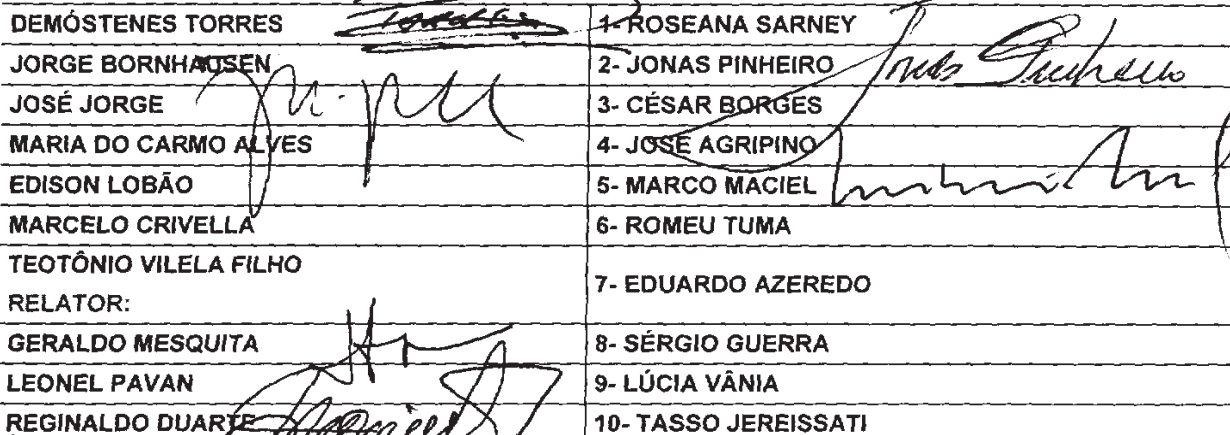 DEMÓSTENES TORRES
1- ROSEANA SARNEY
JORGE BORNHAUSEN
2- JONAS PINHEIRO
Jonas Pinheiro
JOSÉ JORGE
3- CÉSAR BORGES
MARIA DO CARMO ALVES
4- JOSÉ AGRIPINO
EDISON LOBÃO
5- MARCO MACIEL
MARCELO CRIVELLA
6- ROMEU TUMA
TEOTÔNIO VILELA FILHO
RELATOR:
7- EDUARDO AZEREDO
GERALDO MESQUITA
8- SÉRGIO GUERRA
LEONEL PAVAN
9- LÚCIA VÂNIA
REGINALDO DUARTE
10- TASSO JEREISSATI